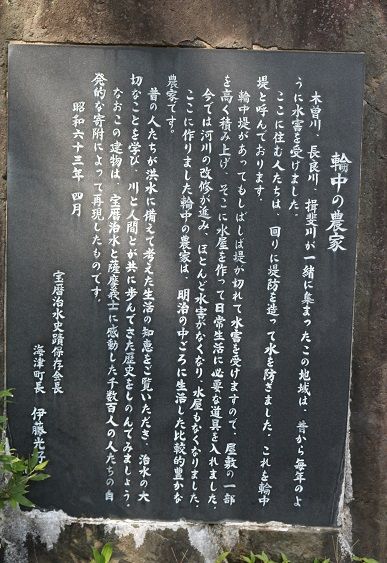 輪中の農家
木曽川、長良川、揖斐川が一緒に集まったこの地域は、昔から毎年のよ
うに水害を受けました。
ここに住む人たちは、回りに堤防を造って水を防ぎました。これを輪中
堤と呼んでおります。
輪中堤があってもしばしば堤が切れて水害を受けますので、屋敷の一部
を高く積み上げ、そこに水屋を作って日常生活に必要な道具を入れました。
今では河川の改修が進み、ほとんど水害がなくなり、水屋もなくなりました。
ここに作りました輪中の農家は、明治の中ごろに生活した比較的豊かな
農家です。
昔の人たちが洪水に備えて考えた生活の知恵をご覧いただき、治水の大
切なことを学び、川と人間とが共に歩んできた歴史をしのんでみましょう。
なおこの建物は、宝暦治水と薩摩義士に感動した千数百人の人たちの自
発的な寄附によって再現したものです。
昭和六十三年 四月
宝暦治水史蹟保存会長
海津町長 伊藤光